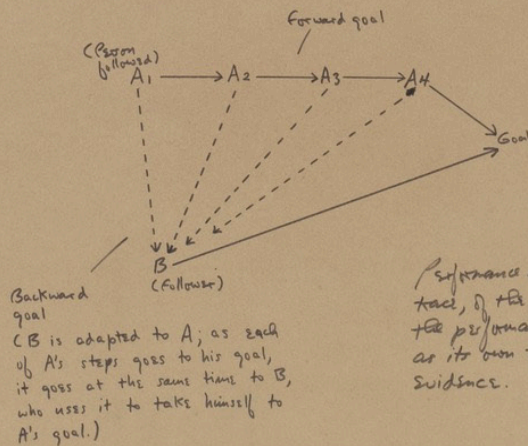 Forward goal
(Person
followed)
A1
A2
A3
A4
Goal
B
(Follower)
Backward
goal
(B is adapted to A; as each
of A's steps goes to his goal,
it goes at the same time to B,
who uses it to take himself to
A's goal.)
Performance
trace, of the
the performa
as its own
evidence.